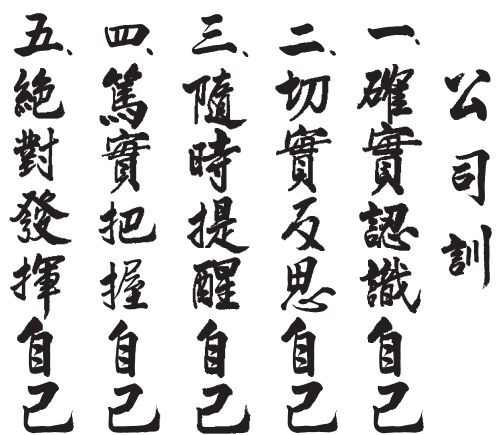 公司訓
一、確實認識自己
二、切實反思自己
三、隨時提醒自己
四、篤實把握自己
五、絕對發揮自己